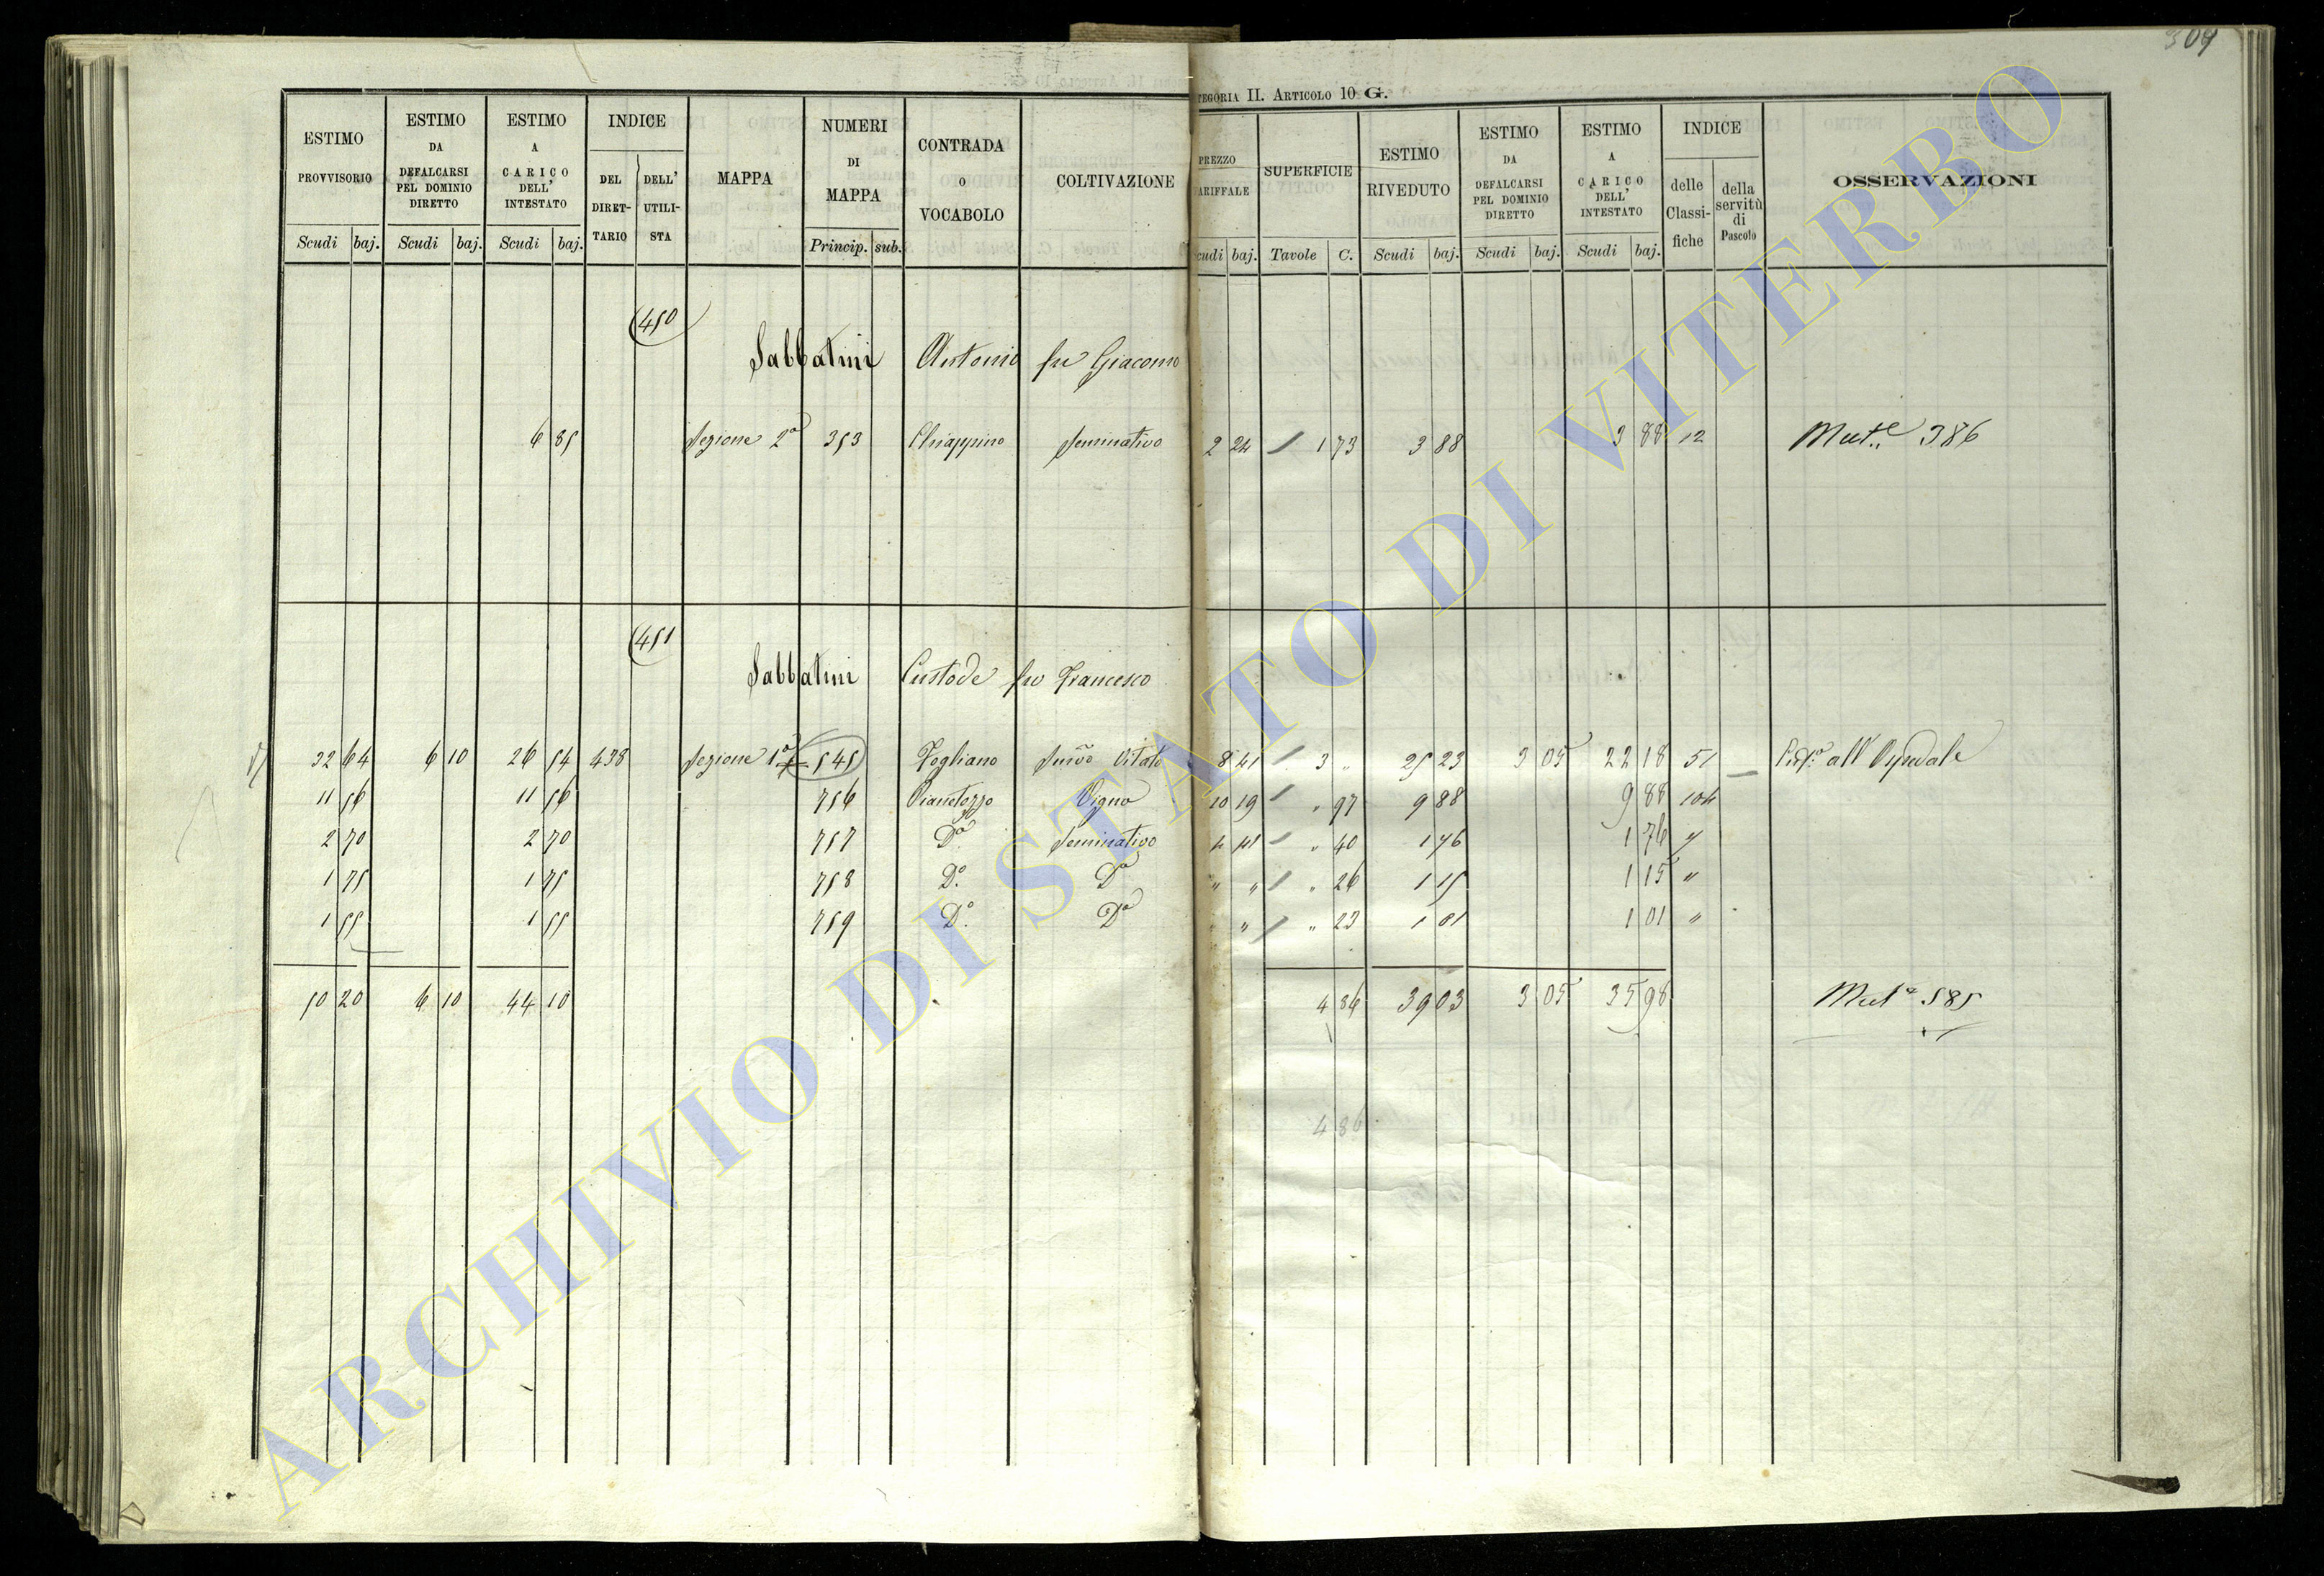 309
CATEGORIA II. ARTICOLO 10 G.
ESTIMO PROVVISORIO Scudi baj. ESTIMO DA DEFALCARSI PEL DOMINIO DIRETTO Scudi baj. ESTIMO A CARICO DELL' INTESTATO Scudi baj. INDICE DEL DIRETTARIO DELL' UTILISTA MAPPA NUMERI DI MAPPA Princip. sub. CONTRADA O VOCABOLO COLTIVAZIONE
PREZZO TARIFFALE Scudi baj. SUPERFICIE Tavole C. ESTIMO RIVEDUTO Scudi baj. ESTIMO DA DEFALCARSI PEL DOMINIO DIRETTO Scudi baj. ESTIMO A CARICO DELL' INTESTATO Scudi baj. INDICE delle Classifiche della servitù di Pascolo OSSERVAZIONI
450
Sabbatini Antonio fu Giacomo
6 85 Sezione 2a 353 Chiappino Seminativo 2 24 1 73 3 88 3 88 12 Mut.e 386
451
Sabbatini Custode fu Francesco
32 64 6 10 26 54 438 Sezione 1a 545 Fogliano Sem̃o Vitato 8 41 3 " 25 23 3 05 22 18 51 all'Ospedale
11 56 11 56 756 Pianetozzo Vigna 10 19 " 97 9 88 9 88 104
2 70 2 70 757 Do. Seminativo 4 41 " 40 1 76 1 76
1 75 1 75 758 Do. Do " " " 26 1 15 1 15 "
1 55 1 55 759 Do. Do " " " 23 1 01 1 01 "
50 20 6 10 44 10 4 86 39 03 3 05 35 98 Mut.e 585
4 86
ARCHIVIO DI STATO DI VITERBO